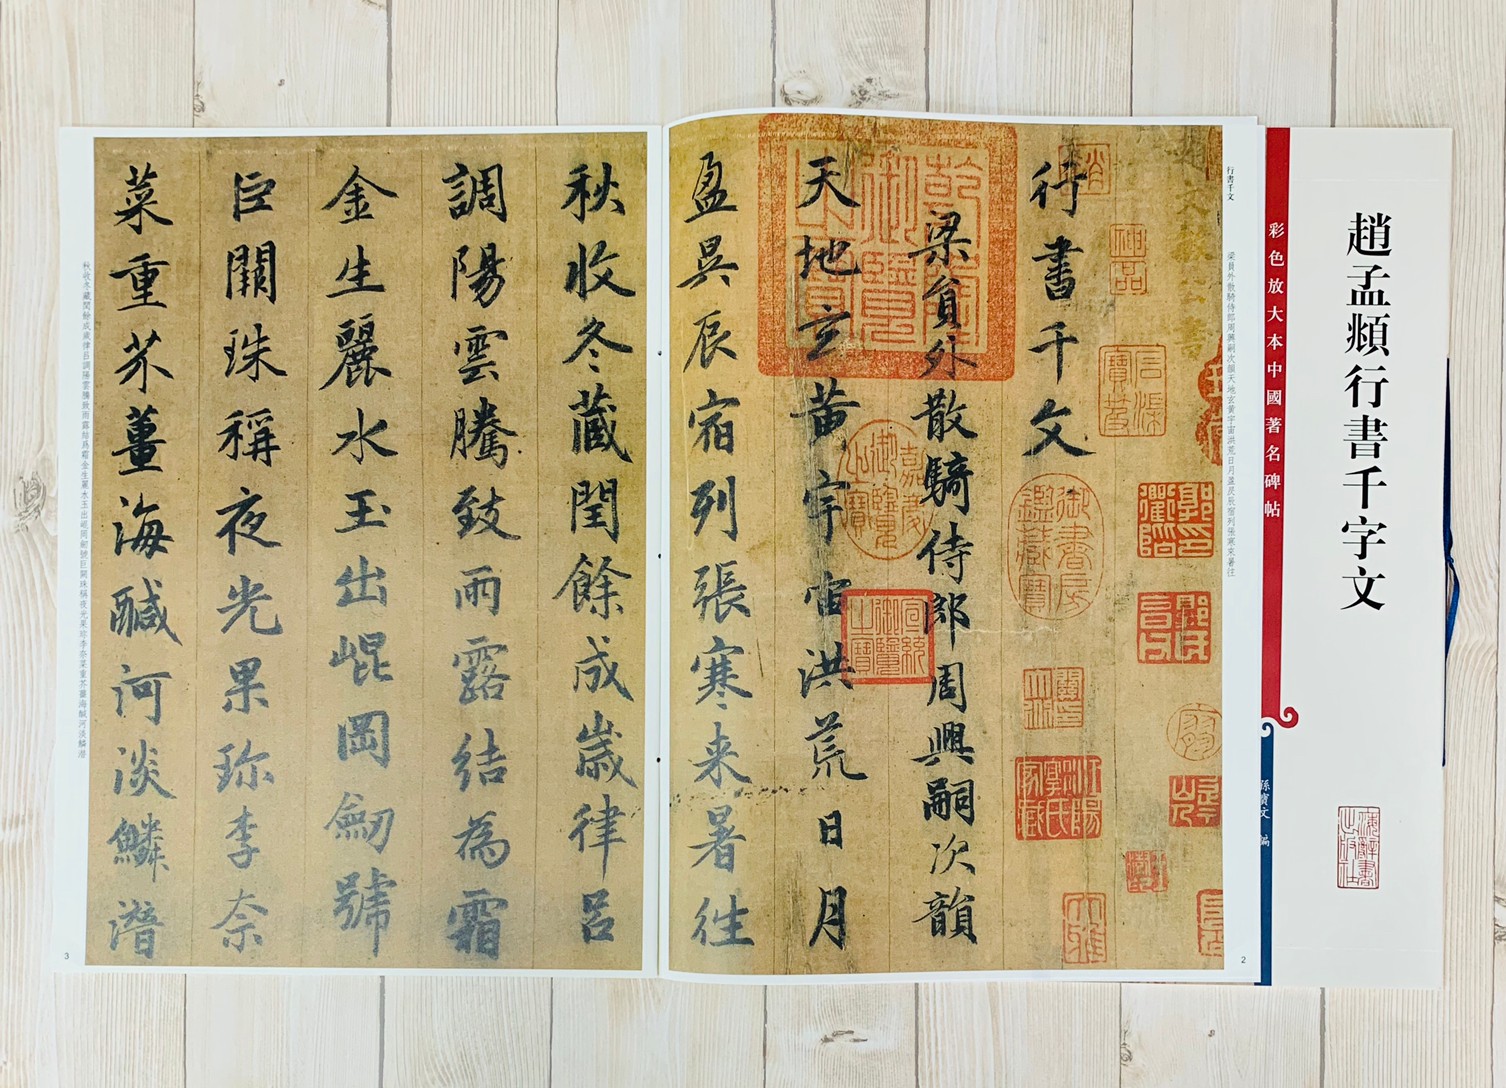 趙孟頫行書千字文
彩色放大本中國著名碑帖
孫寶文 編
行書千文
梁員外散騎侍郎周興嗣次韻天地玄黃宇宙洪荒日月盈昃辰宿列張寒來暑往
2
行書千文
梁貟外散騎侍郎周興嗣次韻
天地玄黃宇宙洪荒日月
盈昃辰宿列張寒来暑往
秋收冬藏閏餘成歲律呂
調陽雲騰致雨露結為霜
金生麗水玉出崐岡劒號
巨闕珠稱夜光果珎李柰
菜重芥薑海鹹河淡鱗潛
秋收冬藏閏餘成歲律呂調陽雲騰致雨露結爲霜金生麗水玉出崐岡劒號巨闕珠稱夜光果珎李柰菜重芥薑海鹹河淡鱗潛
3
乾隆御覽之寶
嘉慶御覽之寶
宣統御覽之寶
御書房鑑藏寶
神品